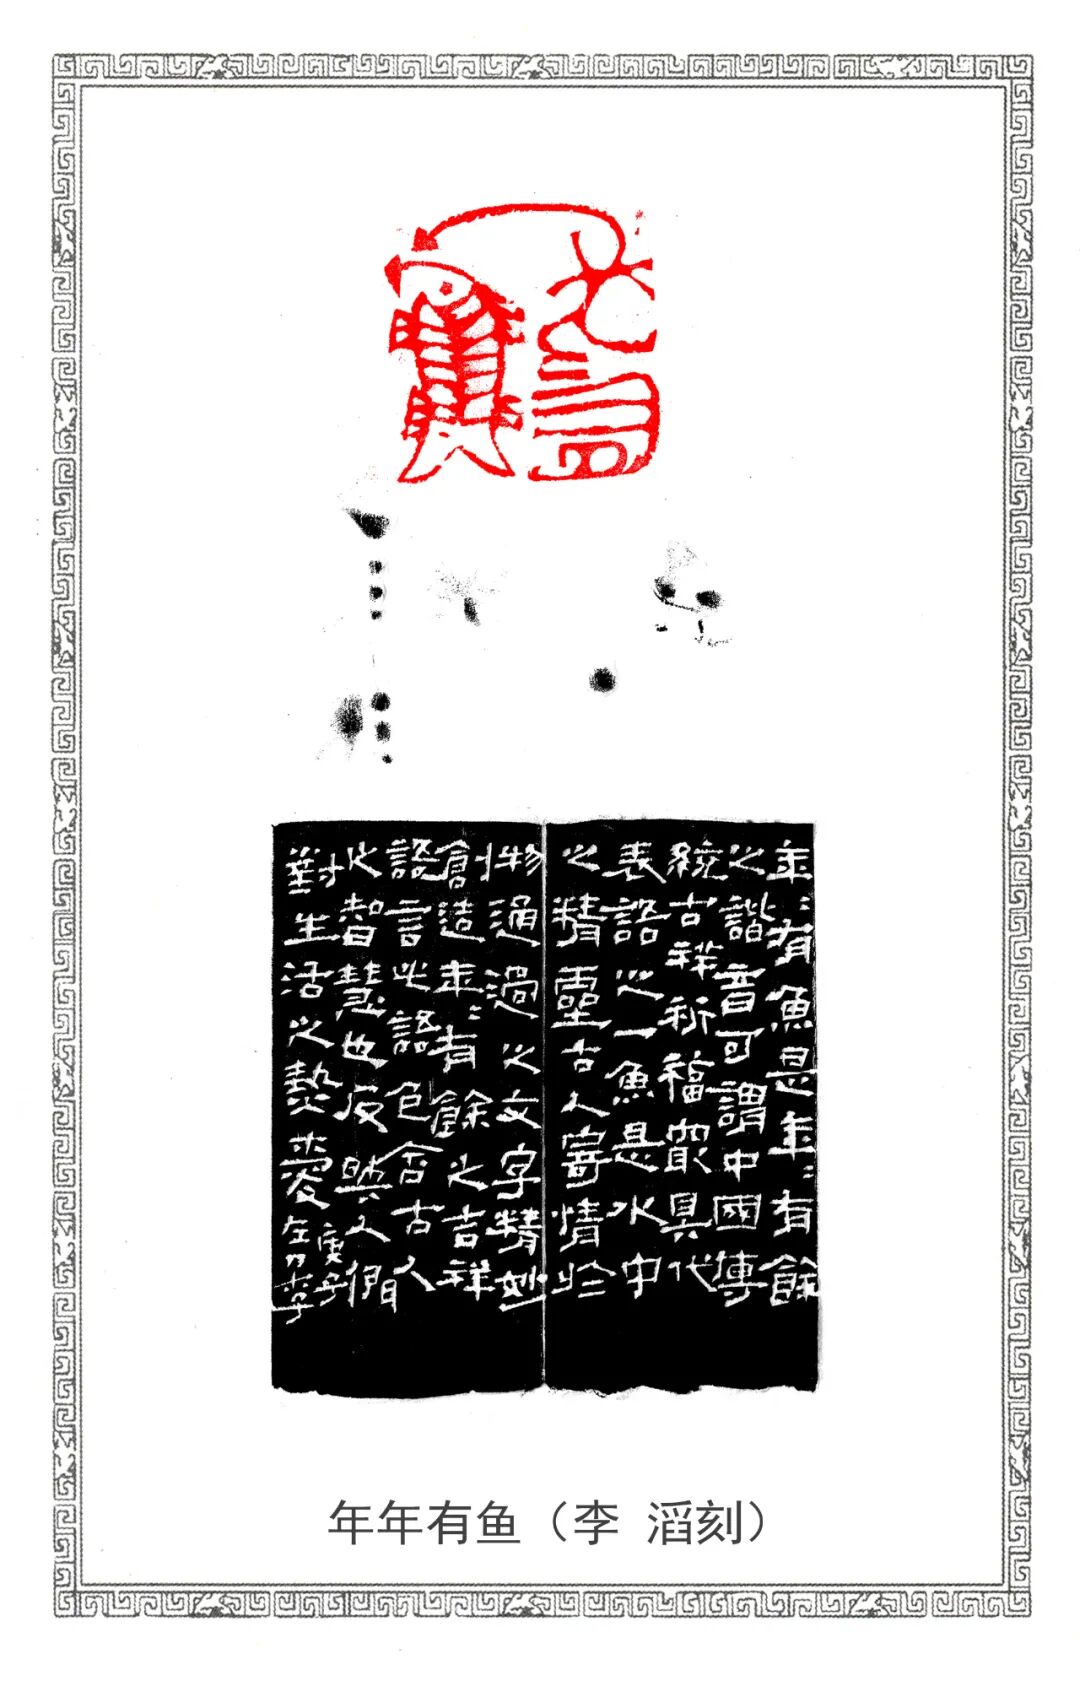 年〻有魚是年〻有餘
之諧音可謂中國傳
統吉祥祈福最具代
表語之一魚是水中
之精靈古人寄情於
物通過之文字精妙
創造年〻有餘之吉祥
語言此語包含古人
之智慧也反映人們
對生活之熱愛庚子
李
年年有鱼（李 滔刻）